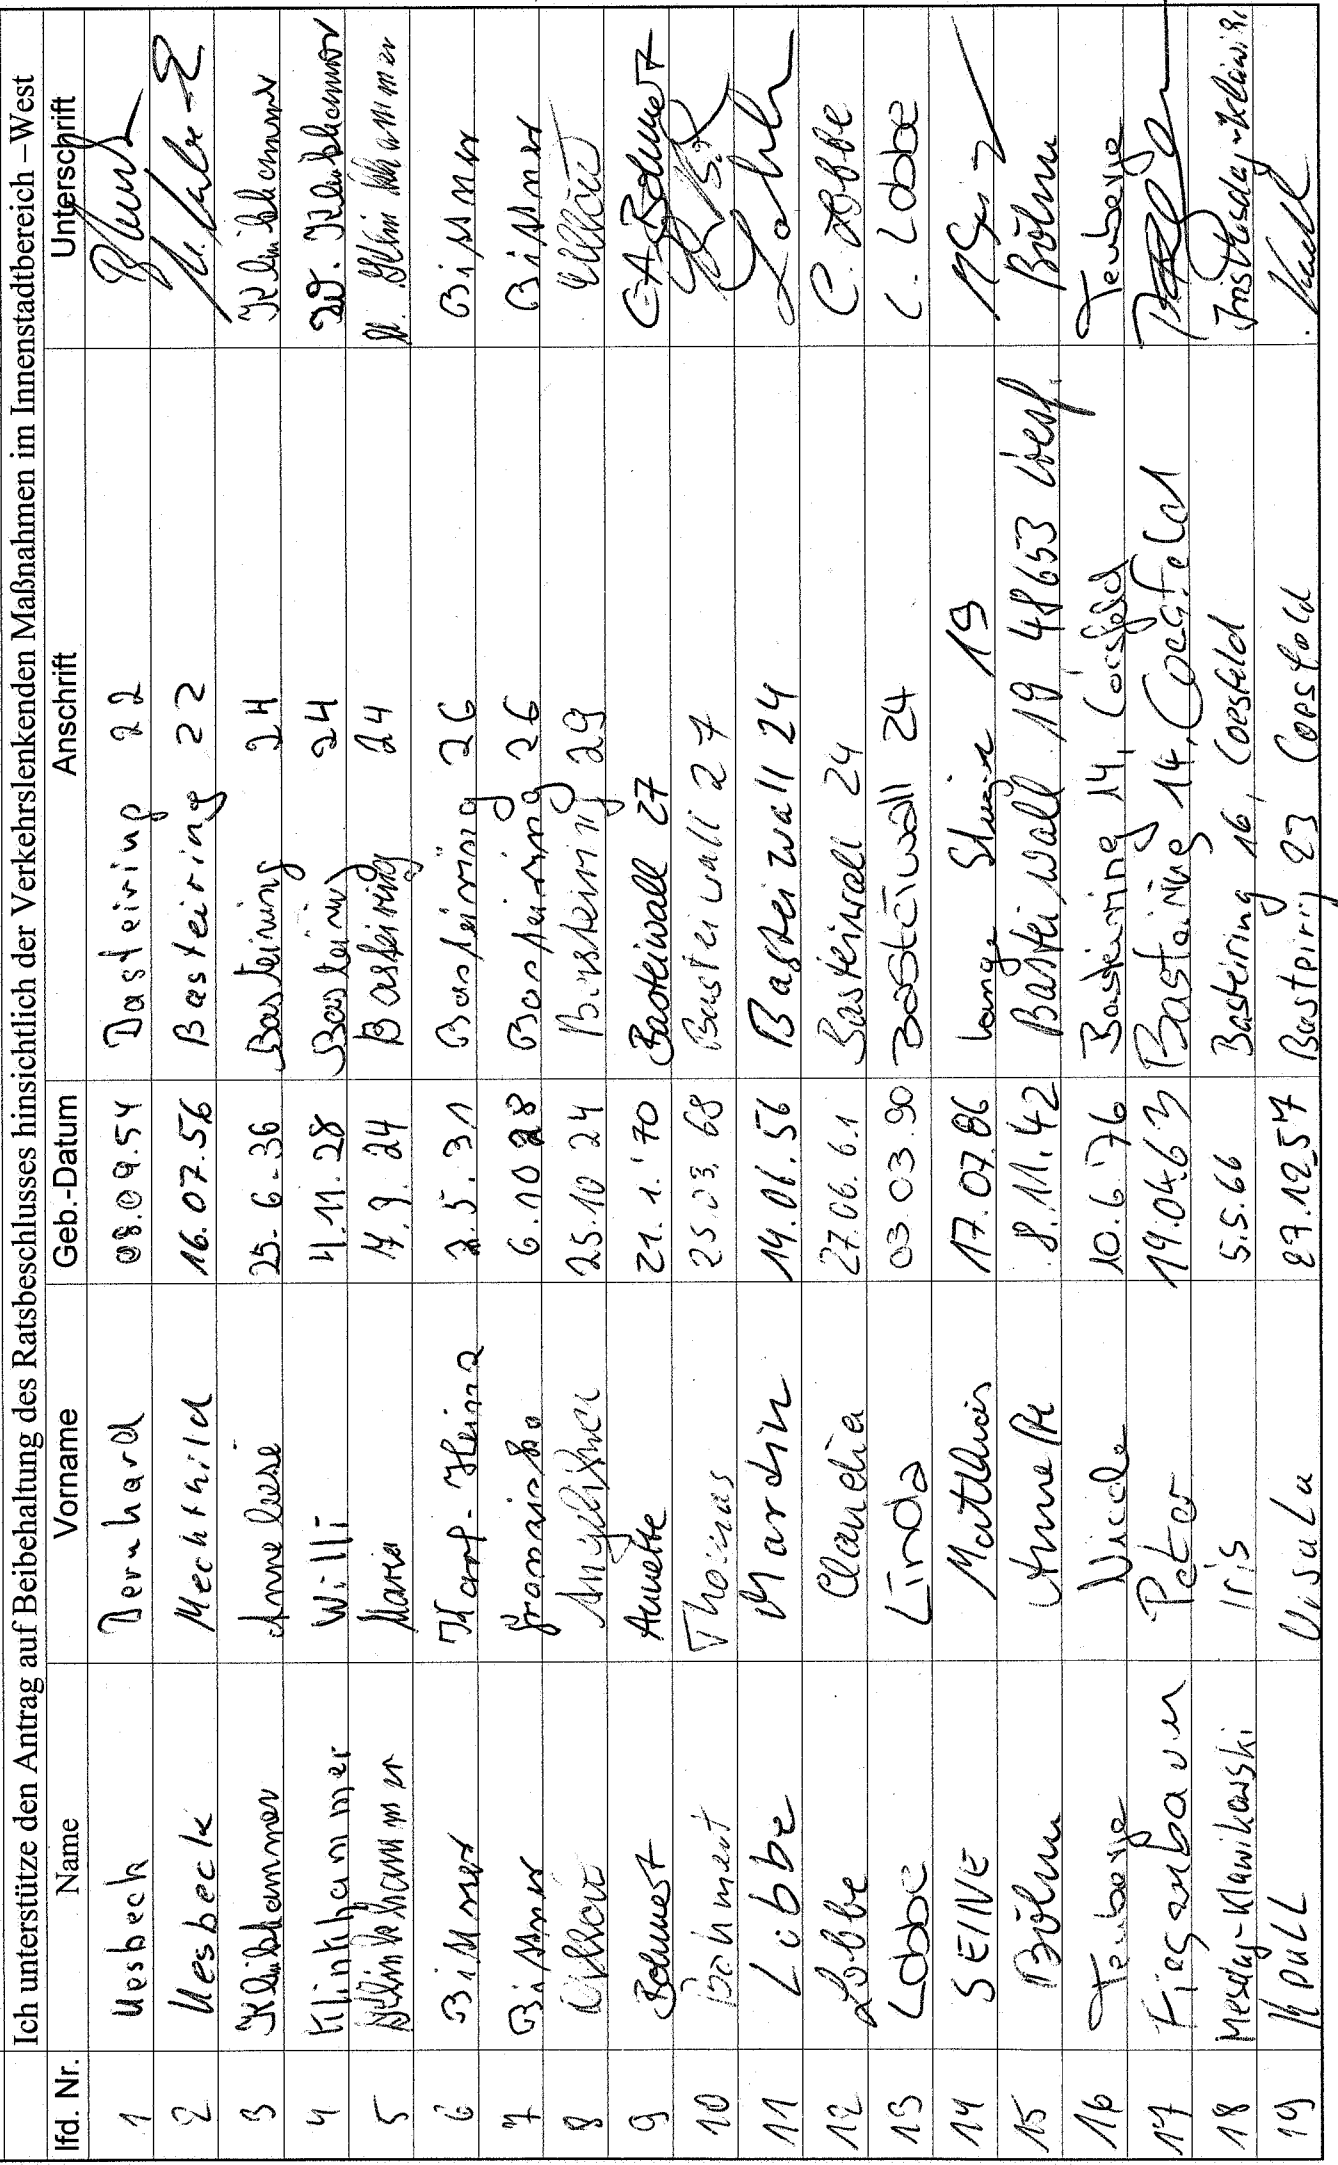 Ich unterstütze den Antrag auf Beibehaltung des Ratsbeschlusses hinsichtlich der Verkehrslenkenden Maßnahmen im Innenstadtbereich –West
lfd. Nr. Name Vorname Geb.-Datum Anschrift Unterschrift
1 Uesbeck Bernhard 08.09.54 Basteiring 22
2 Uesbeck Mechthild 16.07.56 Basteiring 22
3 Klinkhammer Anneliese 25.6.36 Basteiring 24 Klinkhammer
4 Klinkhammer Willi 4.11.28 Basteiring 24 W. Klinkhammer
5 Klinkhammer Maria 24 Basteiring 24 M. Klinkhammer
6 Bissner Karl-Heinz 2.5.31 Basteiring 26 Bissner
7 Bissner Franziska 6.10 28 Basteiring 26 Bissner
8 25.10 24 Basteiring 29
9 Bohmert Annette 21.1.'70 Basteiwall 27 Bohmert
10 Bohmert Thomas 25.03.68 Basteiwall 27
11 Löbbe Martin 14.06.56 Basteiwall 24
12 Löbbe Claudia 27.06.61 Basteiwall 24 C. Löbbe
13 Löbbe Linda 03.03.90 Basteiwall 24 L. Löbbe
14 SEINE Matthias 17.07.86 Lange Stiege 19
15 Böhm Annette 8.11.42 Basteiwall 19 48653 Coesf. Böhm
16 Tenberge Nicole 10.6.'76 Basteiring 14, Coesfeld Tenberge
17 Fiegenbaum Peter 19.04.63 Basteiring 14, Coesfeld
18 Mesday-Klawikowski Iris 5.5.66 Basteiring 16, Coesfeld
19 Knull Ursula 27.12.57 Basteiring 23 Coesfeld